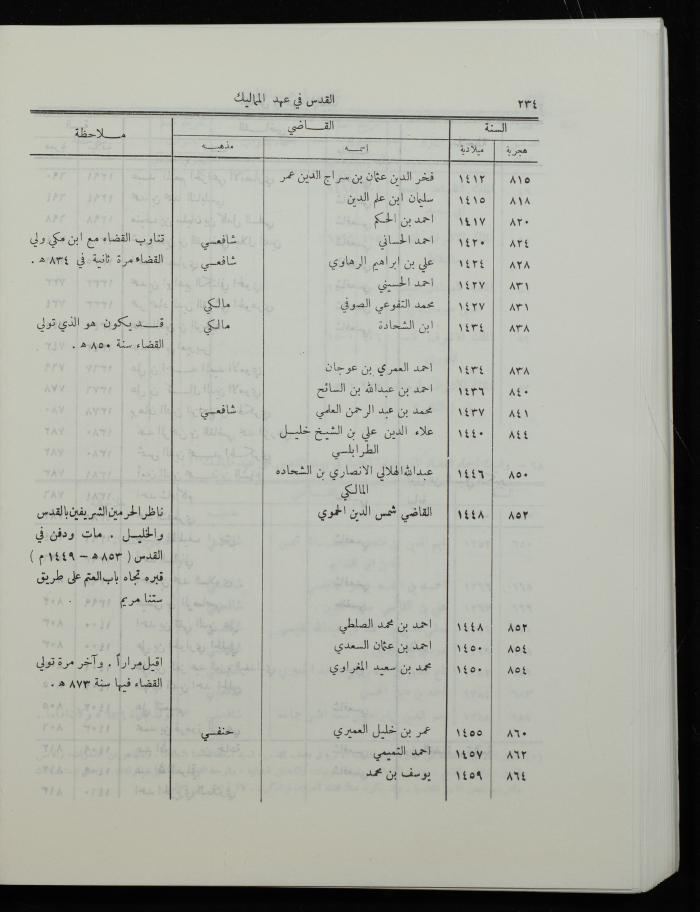 ٢٣٤ القدس في عهد المماليك
السنة القاضي ملاحظة
هجرية ميلادية اسمه مذهبه
٨١٥ ١٤١٢ فخر الدين عثمان بن سراج الدين عمر
٨١٨ ١٤١٥ سليمان ابن علم الدين
٨٢٠ ١٤١٧ احمد بن الحكم
٨٢٤ ١٤٢٠ احمد الحساني شافعي تناوب القضاء مع ابن مكي ولي
٨٢٨ ١٤٢٤ علي بن ابراهيم الرهاوي شافعي القضاء مرة ثانية في ٨٣٤ هـ .
٨٣١ ١٤٢٧ احمد الحسيني
٨٣١ ١٤٢٧ محمد التفوعي الصوفي مالكي
٨٣٨ ١٤٣٤ ابن الشحادة مالكي قد يكون هو الذي تولي
القضاء سنة ٨٥٠ هـ .
٨٣٨ ١٤٣٤ احمد العمري بن عوجان
٨٤٠ ١٤٣٦ احمد بن عبدالله بن السائح
٨٤١ ١٤٣٧ محمد بن عبد الرحمن العلمي شافعي
٨٤٤ ١٤٤٠ علاء الدين علي بن الشيخ خليل
الطرابلسي
٨٥٠ ١٤٤٦ عبدالله الهلالي الانصاري بن الشحاده
المالكي
٨٥٢ ١٤٤٨ القاضي شمس الدين الحموي ناظر الحرمين الشريفين بالقدس
والخليل . مات ودفن في
القدس ( ٨٥٣ هـ – ١٤٤٩ م )
قبره تجاه باب العتم على طريق
ستنا مريم .
٨٥٢ ١٤٤٨ احمد بن محمد الصلطي
٨٥٤ ١٤٥٠ احمد بن عثمان السعدي
٨٥٤ ١٤٥٠ محمد بن سعيد المغراوي اقيل مراراً . وآخر مرة تولي
القضاء فيها سنة ٨٧٣ هـ .
٨٦٠ ١٤٥٥ عمر بن خليل العميري حنفي
٨٦٢ ١٤٥٧ احمد التميمي
٨٦٤ ١٤٥٩ يوسف بن محمد